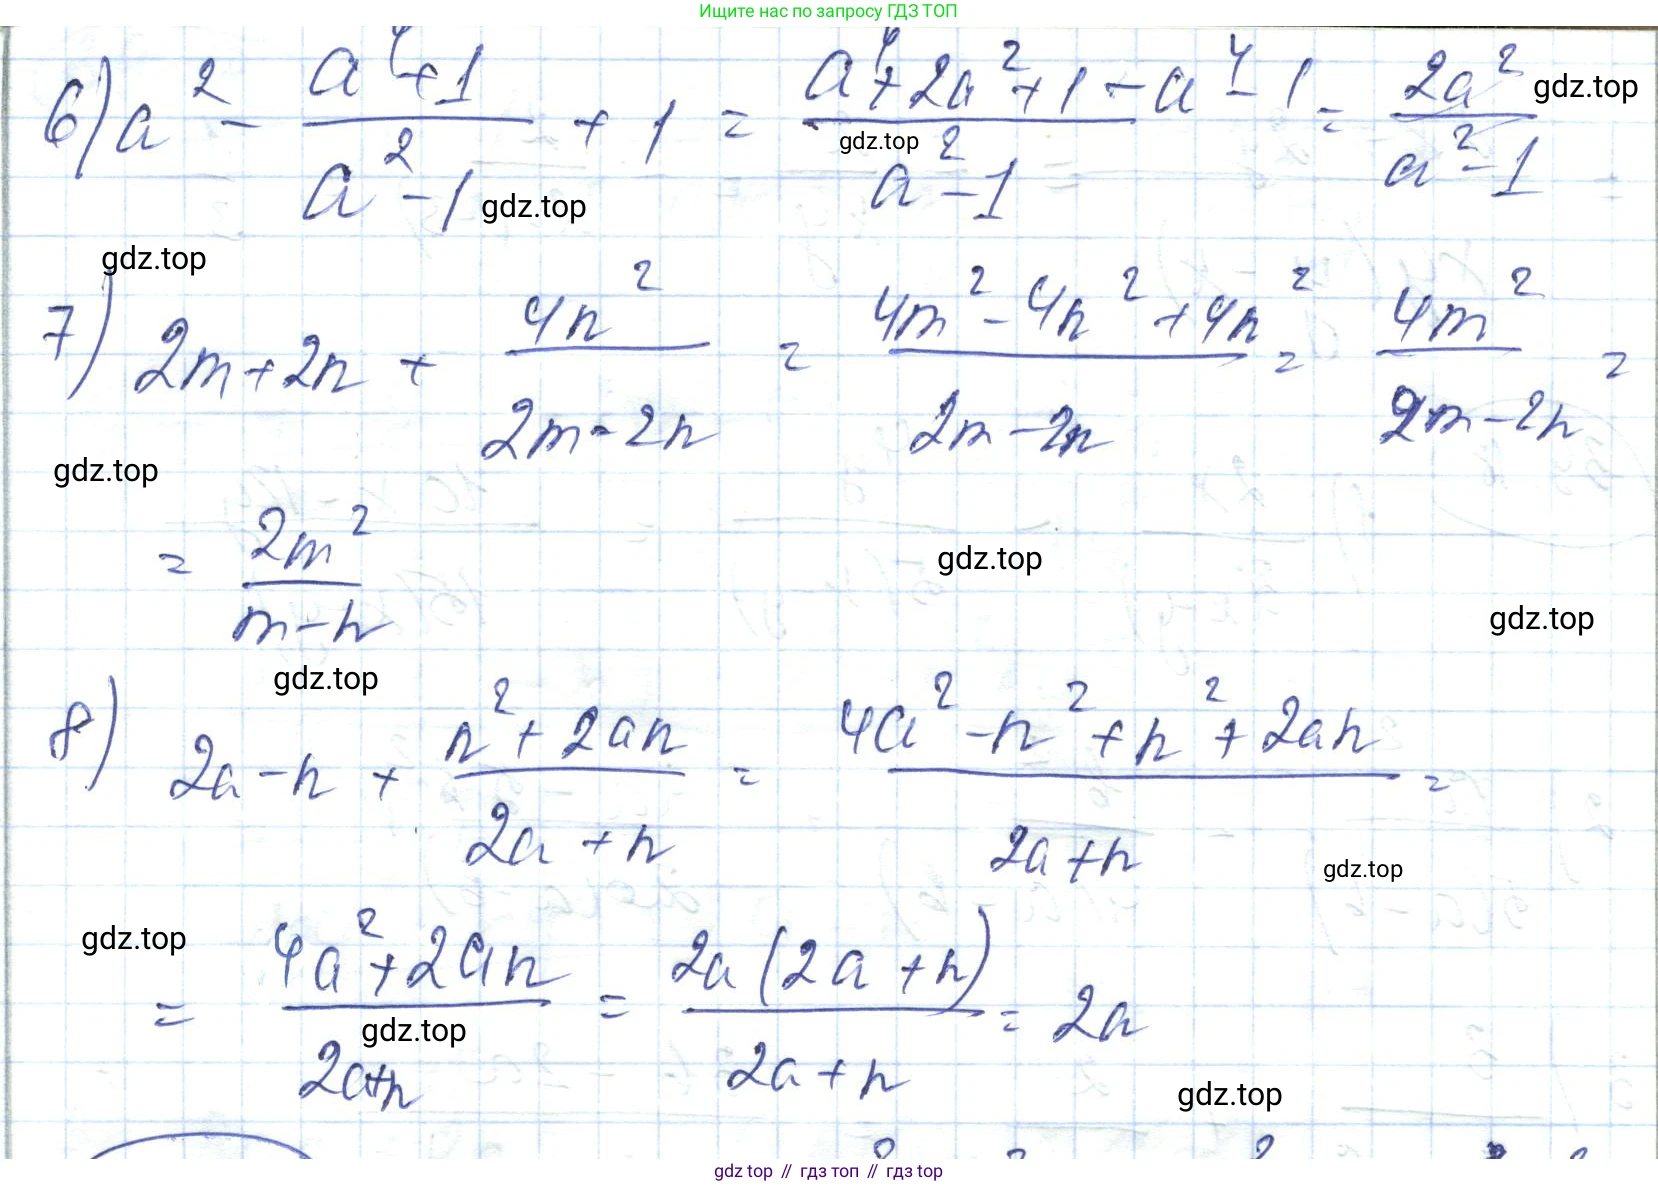 Ищите нас по запросу ГДЗ ТОП
6) a² - (a⁴+1)/(a²-1) + 1 = (a⁴+2a²+1-a⁴-1)/(a²-1) = 2a²/(a²-1)
gdz.top
gdz.top
gdz.top
gdz.top
7) 2m+2n + 4n²/(2m-2n) = (4m²-4n²+4n²)/(2m-2n) = 4m²/(2m-2n) =
gdz.top
= 2m²/(m-n)
gdz.top
gdz.top
gdz.top
8) 2a-n + (n²+2an)/(2a+n) = (4a²-n²+n²+2an)/(2a+n) =
gdz.top
gdz.top
= (4a²+2an)/(2a+n) = 2a(2a+n)/(2a+n) = 2a
gdz.top
gdz.top
gdz top // гдз топ // гдз top